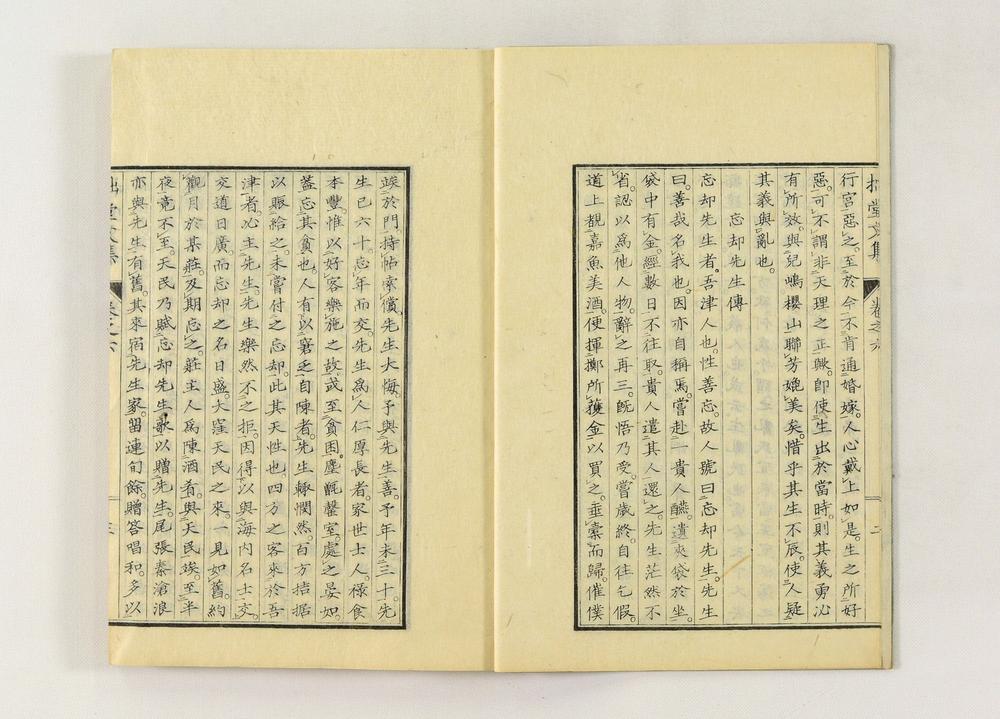 拙堂文集 卷之六 二
行宮惡之。至於今不肯通婚嫁。人心戴上如是。生之所好
惡。可不謂非天理之正歟。卽使生出於當時。則其義勇必
有所效。與兒嶋櫻山聯芳媲美矣。惜乎其生不辰。使人疑
其義與亂也。
忘却先生傳
忘却先生者。吾津人也。性善忘。故人號曰忘却先生。先生
曰。善哉名我也。因亦自稱焉。嘗赴一貴人醼。遺夾袋於坐。
袋中有金。經數日不往取。貴人遣其人還之。先生茫然不
省。認以爲他人物。辭之再三。既悟乃受。嘗歲終自往乞假。
道上覩嘉魚美酒。便揮擲所獲金以買之。垂橐而歸。催僕
竢於門。持帖索償。先生大悔。予與先生善。予年未三十。先
生已六十。忘年而交。先生爲人仁厚長者。家世士人。祿食
本豐。惟以好客樂施之故。或至貧困。塵甑罄室。處之晏如。
葢忘其貧也。人有以窘乏自陳者。先生輙憫然。百方拮据
以賑給之。未嘗付之忘却。此其天性也。四方之客來於吾
津者。必主先生。先生樂然不之拒。因得以與海內名士交。
交道日廣。而忘却之名日盛。大窪天民之來。一見如舊。約
觀月於某莊。及期忘之。莊主人爲陳酒肴。與天民竢。至半
夜竟不至。天民乃賦忘却先生歌以贈先生。尾張秦滄浪
亦與先生有舊。其來宿先生家。留連旬餘。贈答唱和。多以
拙堂文集 卷之六 三